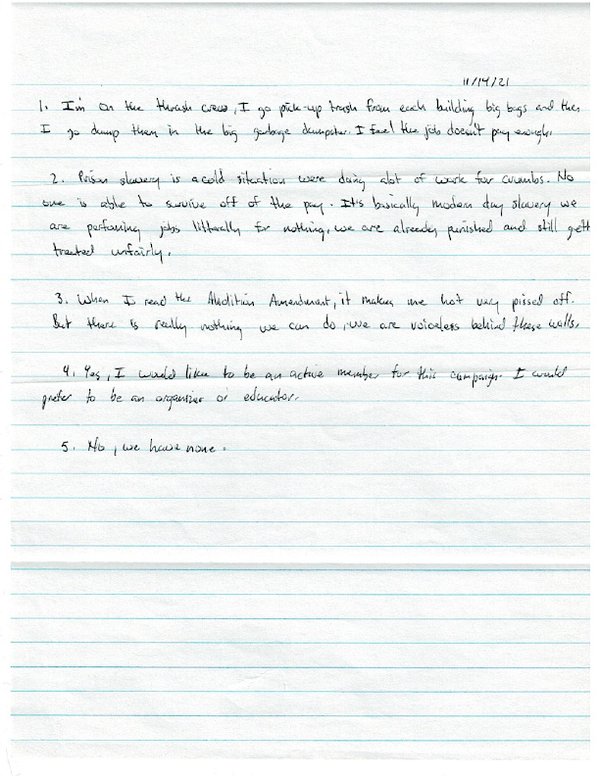 11/14/21
1. I'm on the thrash crew, I go pick-up trash from each building big bags and then
I go dump them in the big garbage dumpster. I feel the job doesn't pay enough.
2. Prison slavery is a cold situation were doing alot of work for crumbs. No
one is able to survive off of the pay. It's basically modern day slavery we
are performing jobs litterally for nothing, we are already punished and still gett
treated unfairly.
3. When I read the Abolition Amendment, it making me hot very pissed off.
But there is really nothing we can do, we are voiceless behind these walls.
4. Yes, I would like to be an active member for this campaign. I would
prefer to be an organizer or educator.
5. No, we have none.